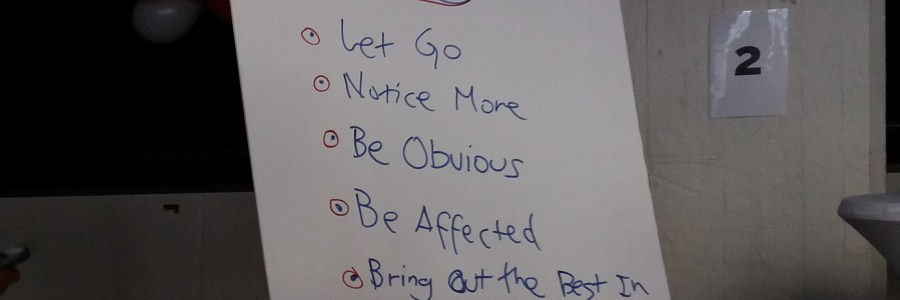 Let Go
Notice More
Be Obvious
Be Affected
Bring Out the Best In
2